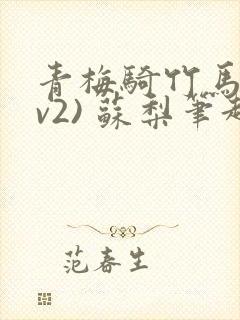 青梅騎竹馬
v2) 蘇梨筆趣
范春生